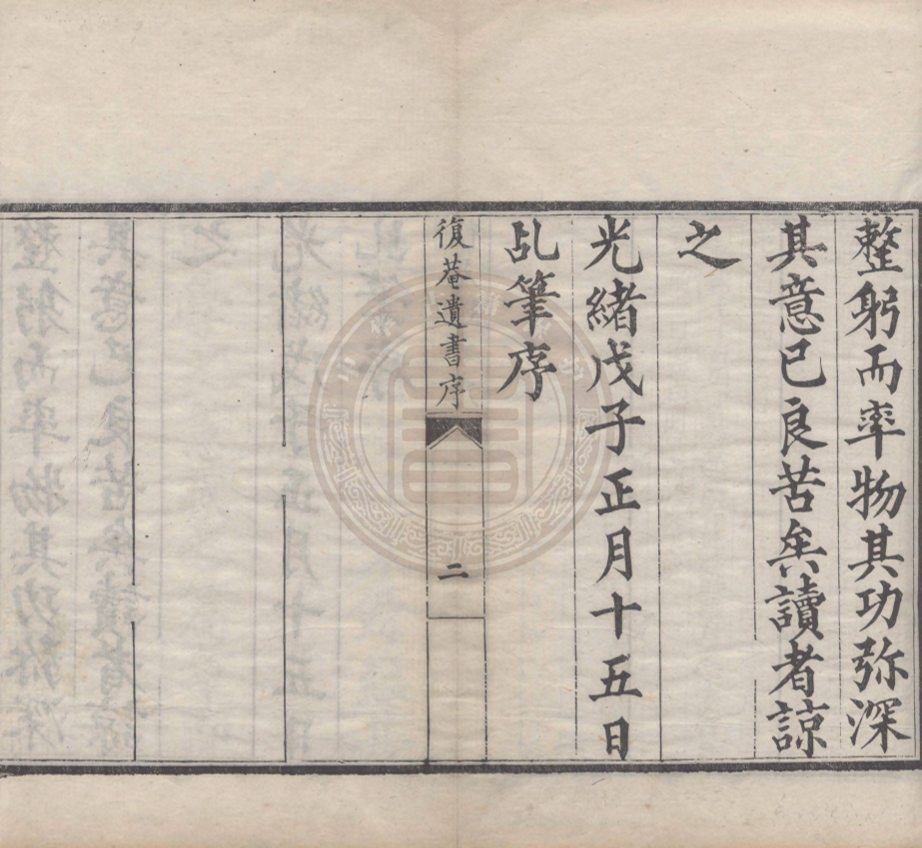 整躬而率物其功弥深
其意已良苦矣讀者諒
之
光緒戊子正月十五日
乩筆序
復菴遺書序
二